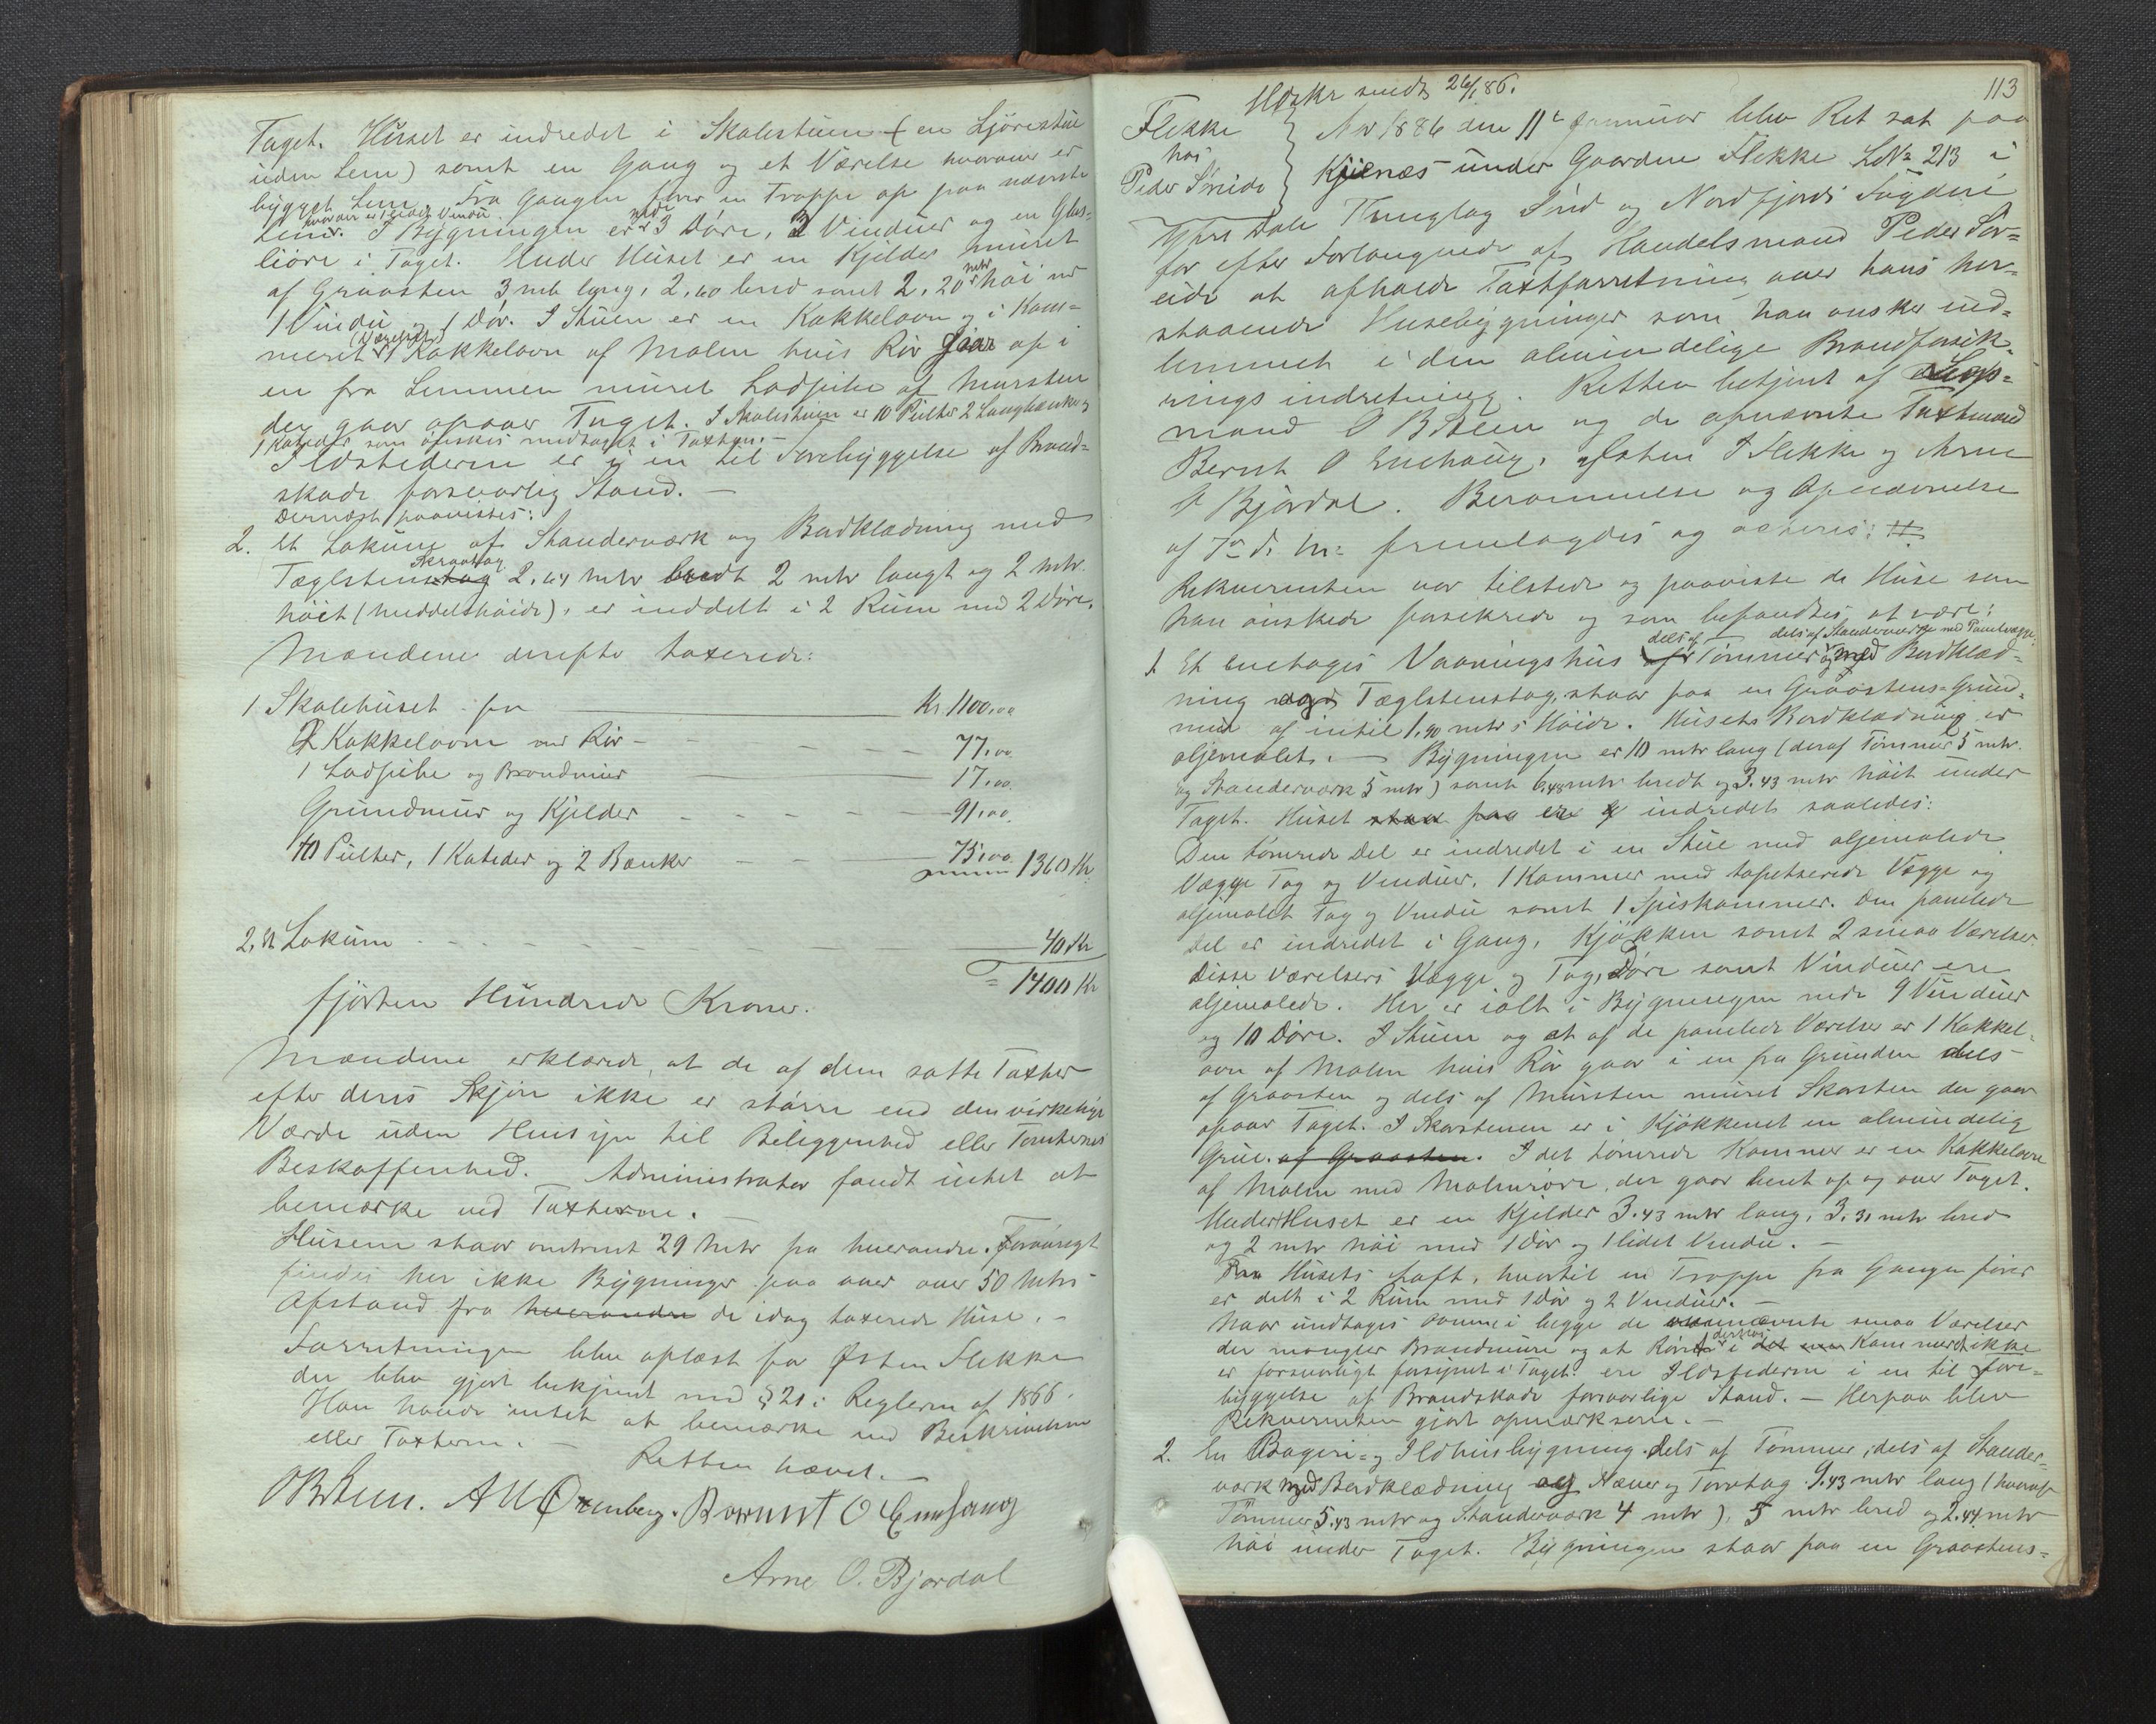 Taget. Huset er indredet i Skolestuen (en Ljørestue
uden Lem) samt en Gang og et Værelse hvorover er
bygget Lem. Fra Gangen fører en Trappe op paa nævnte
hvorover er 1 Vindu.
Lem. I Bygningen er nede 3 Døre, 3 Vinduer og en Glas-
liøre i Taget. Under Huset er en Kjelder muret
af Graasten 3 mtr lang, 2,60 bred samt 2,20 mtr høi med
1 Vindu og 1 Dør. I Stuen er en Kakkelovn og i Kam-
meret (Værelset) 1 Kakkelovn af Malm hvis Rør gaar op i
en fra Lemmen muret Ladpibe af Mursten
der gaar op over Taget. I Skolestuen er 10 Pulter 2 Langbænke og
1 Kateder som ønskes medtaget i Taxten.-
Ildstederne er i en til Forebyggelse af Brand-
skade forsvarlig Stand. -
Dernæst paavistes:
2. Et Lokum af Standerværk og Bordklædning med
Tæglstens Skraatag 2,64 mtr bredt 2 mtr langt og 2 mtr.
høit (Middelshøide), er inddelt i 2 Rum med 2 Døre.
Mændene derefter taxerede:
1 Skolehuset for Kr. 1100,00
2 Kakkelovne med Rør - 77,00.
1 Ladpibe og Brandmur 17,00.
Grundmur og Kjelder - 91,00.
10 Pulter, 1 Kateder og 2 Bænker 75,00. 1360 Kr
2. Et Lokum 40 Kr
= 1400 Kr
fjorten Hundrede Kroner.
Mændene erklærede, at de af dem satte Taxter
efter deres Skjøn ikke er større end den virkelige
Værdi uden Hensyn til Beliggenhed eller Tomternes
Beskaffenhed. Administrator fandt intet at
bemærke ved Taxterne.
Husene staar omtrent 29 mtr fra hverandre. Forøvrigt
findes her ikke Bygninger paa over 50 Mtrs
Afstand fra hverandre de idag taxerede Huse. -
Forretningen blev oplæst for Østen Flekke
der blev gjort bekjendt med § 21 i Reglerne af 1866.
Han havde intet at bemærke ved Beskrivelsen
eller Taxterne. -
Retten hævet. -
O Bthun. Bernnt O Enehaug
Arne O. Bjordal
113
Udskr sendt 26/1 86.
Flekke
hos
Peder Søreide
Aar 1886 den 11te Januar blev Ret sat paa
Kjelnæs under Gaarden Flekke LNo 213 i
Ytre Dale Thinglag Sønd og Nordfjords Fogderi
for efter Forlangende af Handelsmand Peder Sør-
eide at afholde Taxtforretning over hans her-
staaende Husebygninger som han ønsker ind-
lemmet i den almindelige Brandforsik-
rings indretning. Retten betjent af Lens-
mand O BThun og de opnævnte Taxtmænd
Bernt O Enehaug, Østen I Flekke og Arne
O Bjordal. Berammelse og Opnævnelse
af 7de ds. M: fremlagdes og acteres: #
Rekvirenten var tilstede og paaviste de Huse som
han ønskede forsikrede og som befandtes at være:
dels af dels af Standerværk med Panelvægge
1. Et enetages Vaaningshus af Tømmer og med Bordklæd-
ning og Tæglstenstag, staar paa en Graastens-Grund-
mur af indtil 1,90 mtrs Høide. Husets Bordklædning er
oljemalet. - Bygningen er 10 mtr lang (deraf Tømmer 5 mtr.
og Standerværk 5 mtr) samt 6,48 mtr bredt og 3,43 mtr høit under
Taget. Huset staar paa er indredet saaledes:
Den tømrede Del er indredet i en Stue med oljemalede
Vægge Tag og Vinduer, 1 Kammer med tapetserede Vægge og
oljemalet Tag og Vindu samt 1 Spiskammer. Den panelede
Del er indredet i Gang, Kjøkken samt 2 smaa Værelser.
Disse Værelsers Vægge og Tag, Døre samt Vinduer ere
oljemalede. Her er ialt i Bygningen nede 9 Vinduer
og 10 Døre. I Stuen og et af de panelede Værelser er 1 Kakkel-
ovn af Malm hvis Rør gaar i en fra Grunden dels
af Graasten og dels af Mursten muret Skorsten der gaar
opover Taget. I Skorstenen er i Kjøkkenet en almindelig
Grue. af Graasten. I det tømrede Kammer er en Kakkelovn
af Malm med Malmrøre, der gaar bent op og over Taget.
Under Huset er en Kjelder 3,43 mtr lang, 3,31 mtr bred
og 2 mtr høi med 1 Dør og 1 lidet Vindu. -
Husets Loft, hvortil en Trappe fra Gangen fører
er delt i 2 Rum med 1 Dør og 2 Vinduer. -
Naar undtages Ovnene i begge de nævnte smaa Værelser
der mangler Brandmure og at Røret i Kammeret ikke
er forsvarligt forsynet i Taget. ere Ildstederne i en til Fore-
byggelse af Brandskade forsvarlige Stand. - Herpaa blev
Rekvirenten gjort opmærksom. -
2. En Bageri- og Ildhusbygning dels af Tømmer, dels af Stander-
værk med Bordklædning og Næver og Torvtag. 9,43 mtr lang (hvoraf
Tømmer 5,43 mtr og Standerværk 4 mtr), 5 mtr bred og 2,44 mtr
høi under Taget. Bygningen staar paa en Graastens-